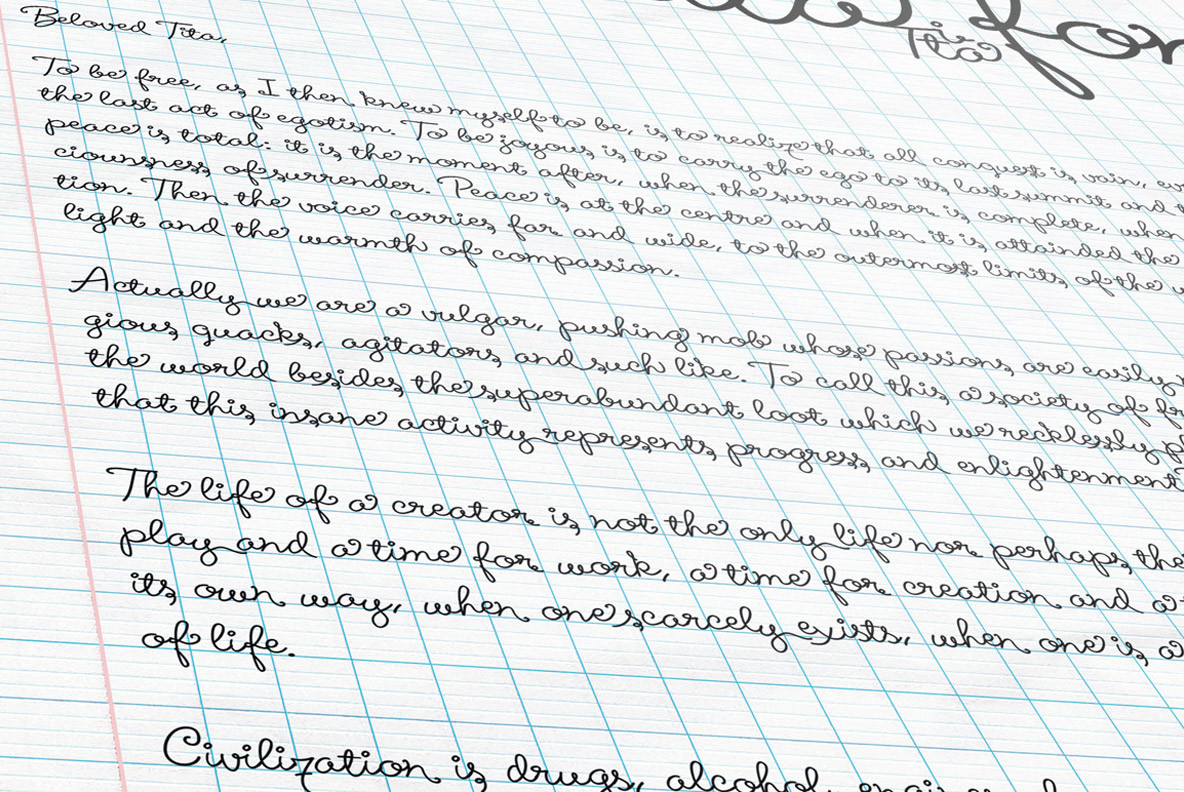 for
is
Tita
Beloved Tita,
To be free, as I then knew myself to be, is to realize that all conquest is vain,
the last act of egotism. To be joyous is to carry the ego to its last summit and
peace is total: it is the moment after, when the surrenderer is complete, when
ciounsness of surrender. Peace is at the centre and when it is attained the
tion. Then the voice carries far and wide, to the outermost limits of the
light and the warmth of compassion.
Actually we are a vulgar, pushing mob whose passions are easily
gious quacks, agitators and such like. To call this a society of
the world besides the superabundant loot which we recklessly
that this insane activity represents progress and enlightenment
The life of a creator is not the only life nor perhaps the
play and a time for work, a time for creation and a
its own way, when one scarcely exists, when one is a
of life.
Civilization is drugs, alcohol,